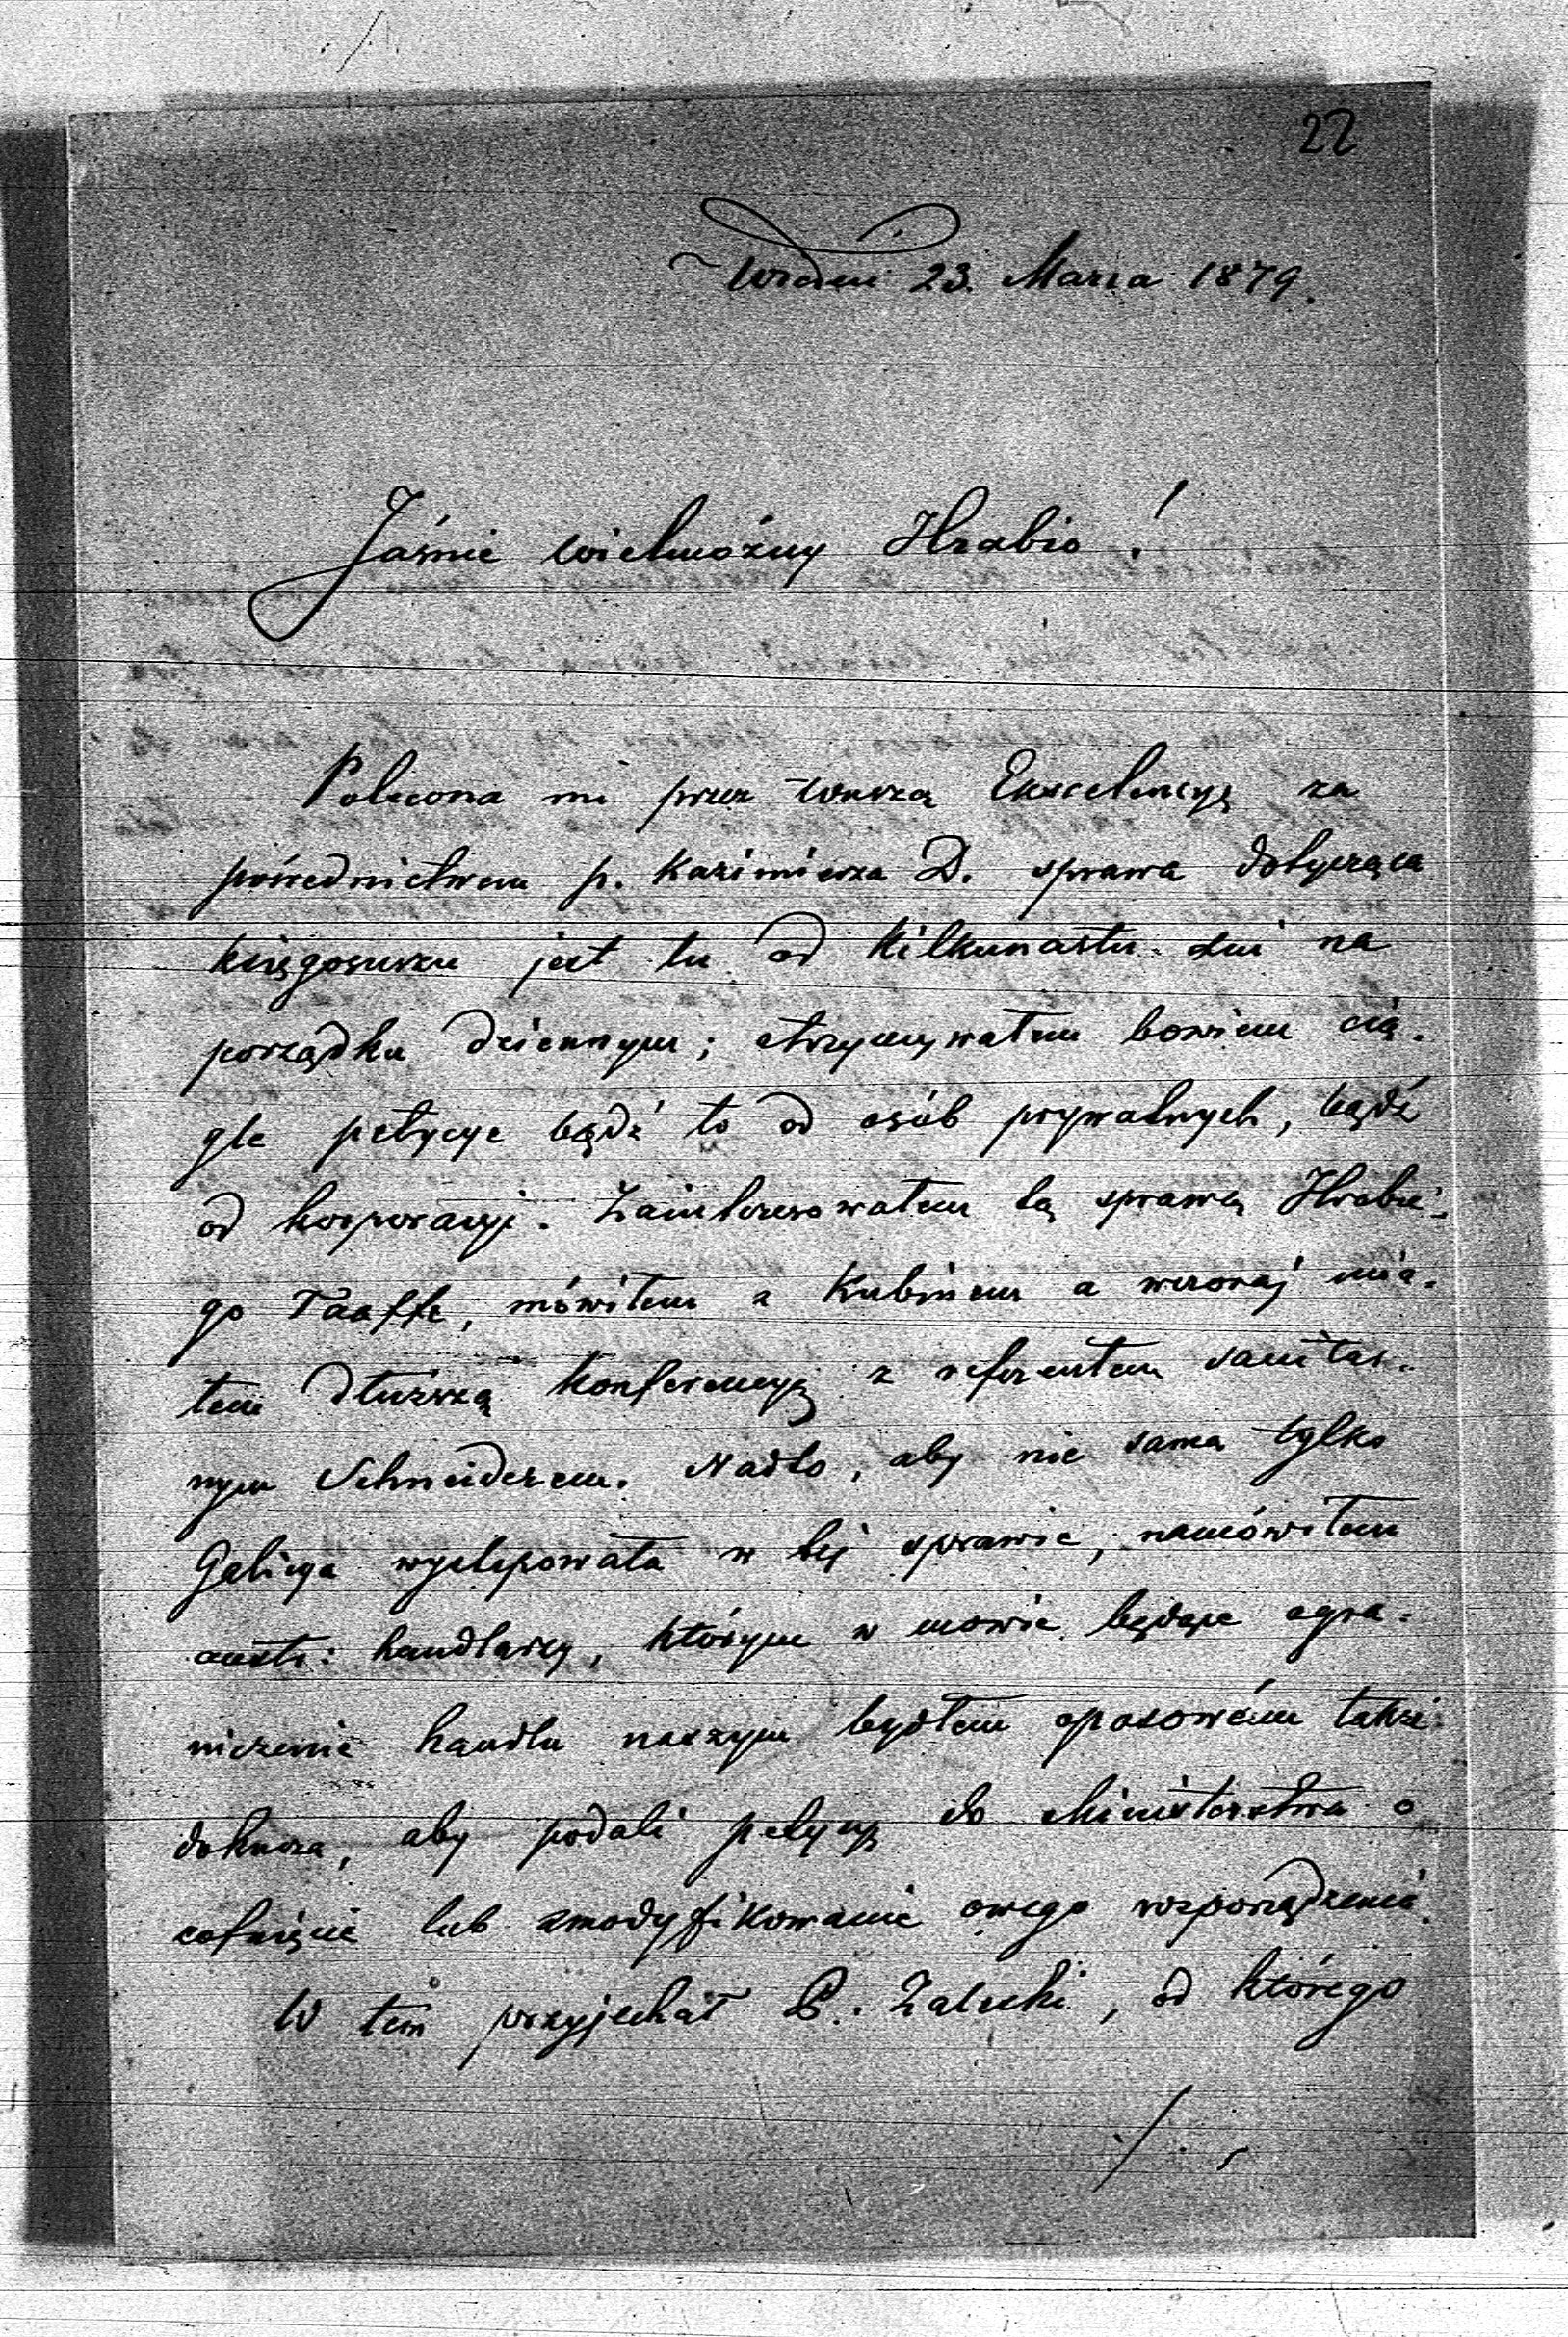 22
Wiedeń 23. Marca 1879.
Jaśnie Wielmożny Hrabio!
Polecona mi przez Waszą Excelencyę za
pośrednictwem p. Kazimierza D. sprawa dotycząca
księgosuszu jest tu od kilkunastu dni na
porządku dziennym; otrzymywałem bowiem cią-
gle petycye bądź to od osób prywatnych, bądź
od korporacyi. Zainteresowałem tą sprawą Hrabie-
go Taaffe, mówiłem z Kubinem a wczoraj mia-
łem dłuższą konferencyę z referentem sanitar-
nym Schneiderem. Nadto, aby nie sama tylko
Galicya występowała w tej sprawie, namówiłem
austr: handlarzy, którym w mowie będące ogra-
niczenie handlu naszym bydłem opasowém także
dokucza, aby podali petycyę do Ministerstwa o
cofnięcie lub zmodyfikowanie owego rozporządzenia.
W tem przyjechał P. Załuski, od którego
./.